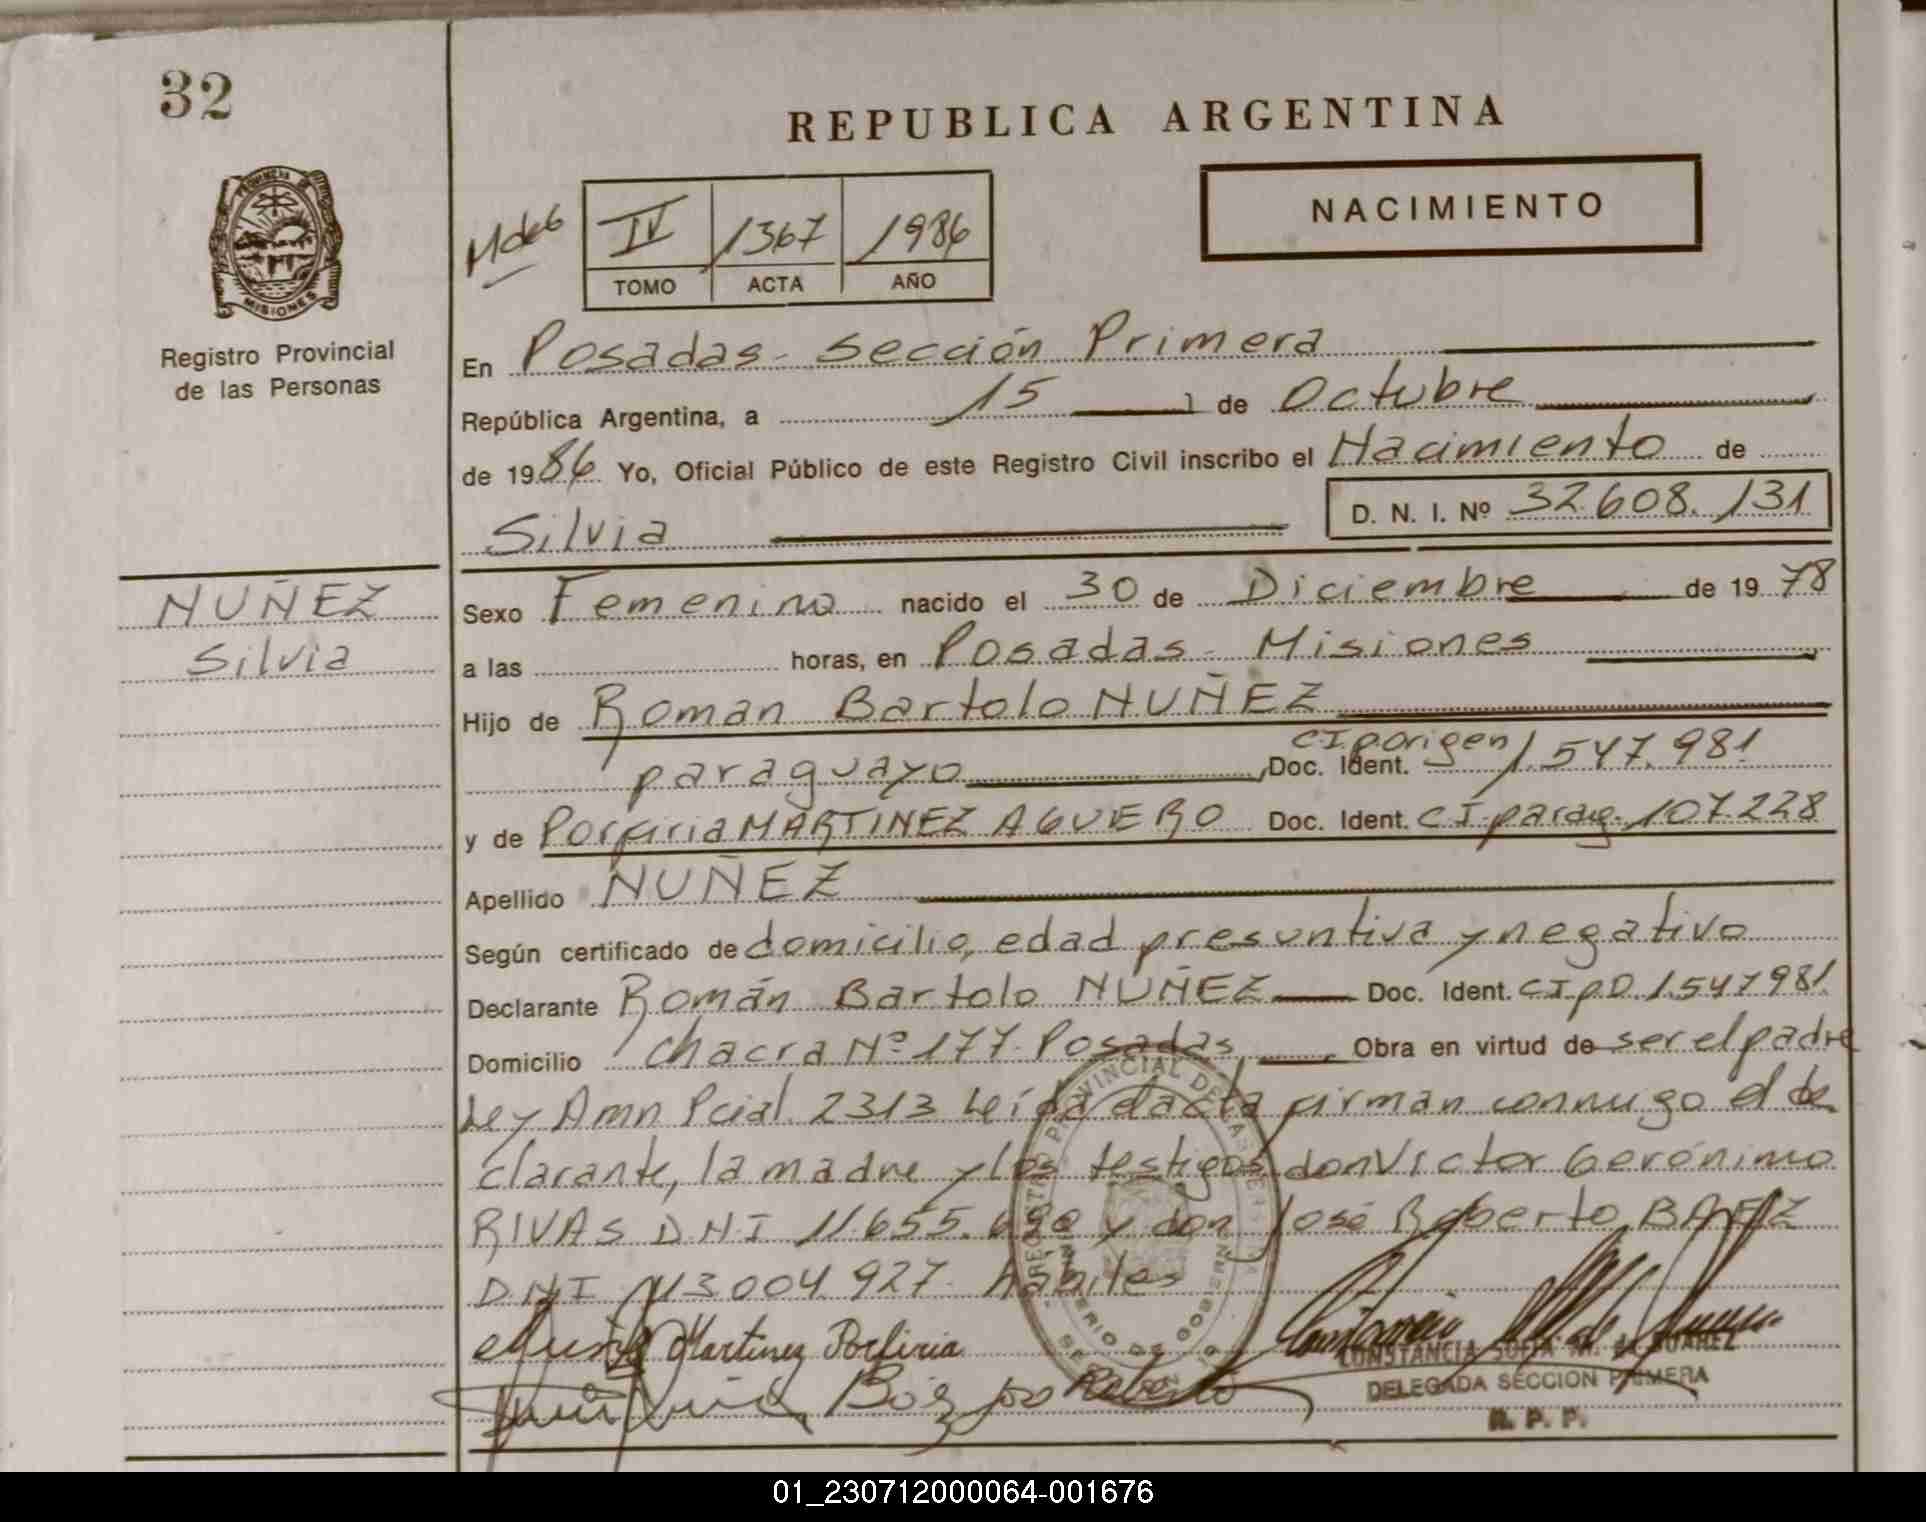 32
REPUBLICA ARGENTINA
NACIMIENTO
IV 1367 1986
TOMO ACTA AÑO
PROVINCIA DE
MISIONES
Registro Provincial
de las Personas
En Posadas - Sección Primera
República Argentina, a 15 de Octubre
de 1986 Yo, Oficial Público de este Registro Civil inscribo el Nacimiento de
Silvia D. N. I. Nº 32.608.131
NUÑEZ
Silvia
Sexo Femenino nacido el 30 de Diciembre de 1978
a las horas, en Posadas - Misiones
Hijo de Roman Bartolo NUÑEZ
paraguayo Doc. Ident. C.I.p.origen 1.547.981
y de Porfiria MARTINEZ AGUERO Doc. Ident. C I parag. 107.228
Apellido NUÑEZ
Según certificado de domicilio, edad presuntiva y negativo
Declarante Román Bartolo NUÑEZ Doc. Ident. C I p.O. 1.547981
Domicilio Chacra Nº 177 - Posadas Obra en virtud de ser el padre
Ley Amn Pcial 2313 Leída el acta firman conmigo el de
clarante, la madre y los testigos don Victor Gerónimo
RIVAS D.N.I 11.655.690 y don José Roberto BAEZ
D.N.I 13004927 hábiles
Martinez Porfiria
Roberto
CONSTANCIA SOFIA DE SUAREZ
DELEGADA SECCION PRIMERA
R. P. P.
01_230712000064-001676